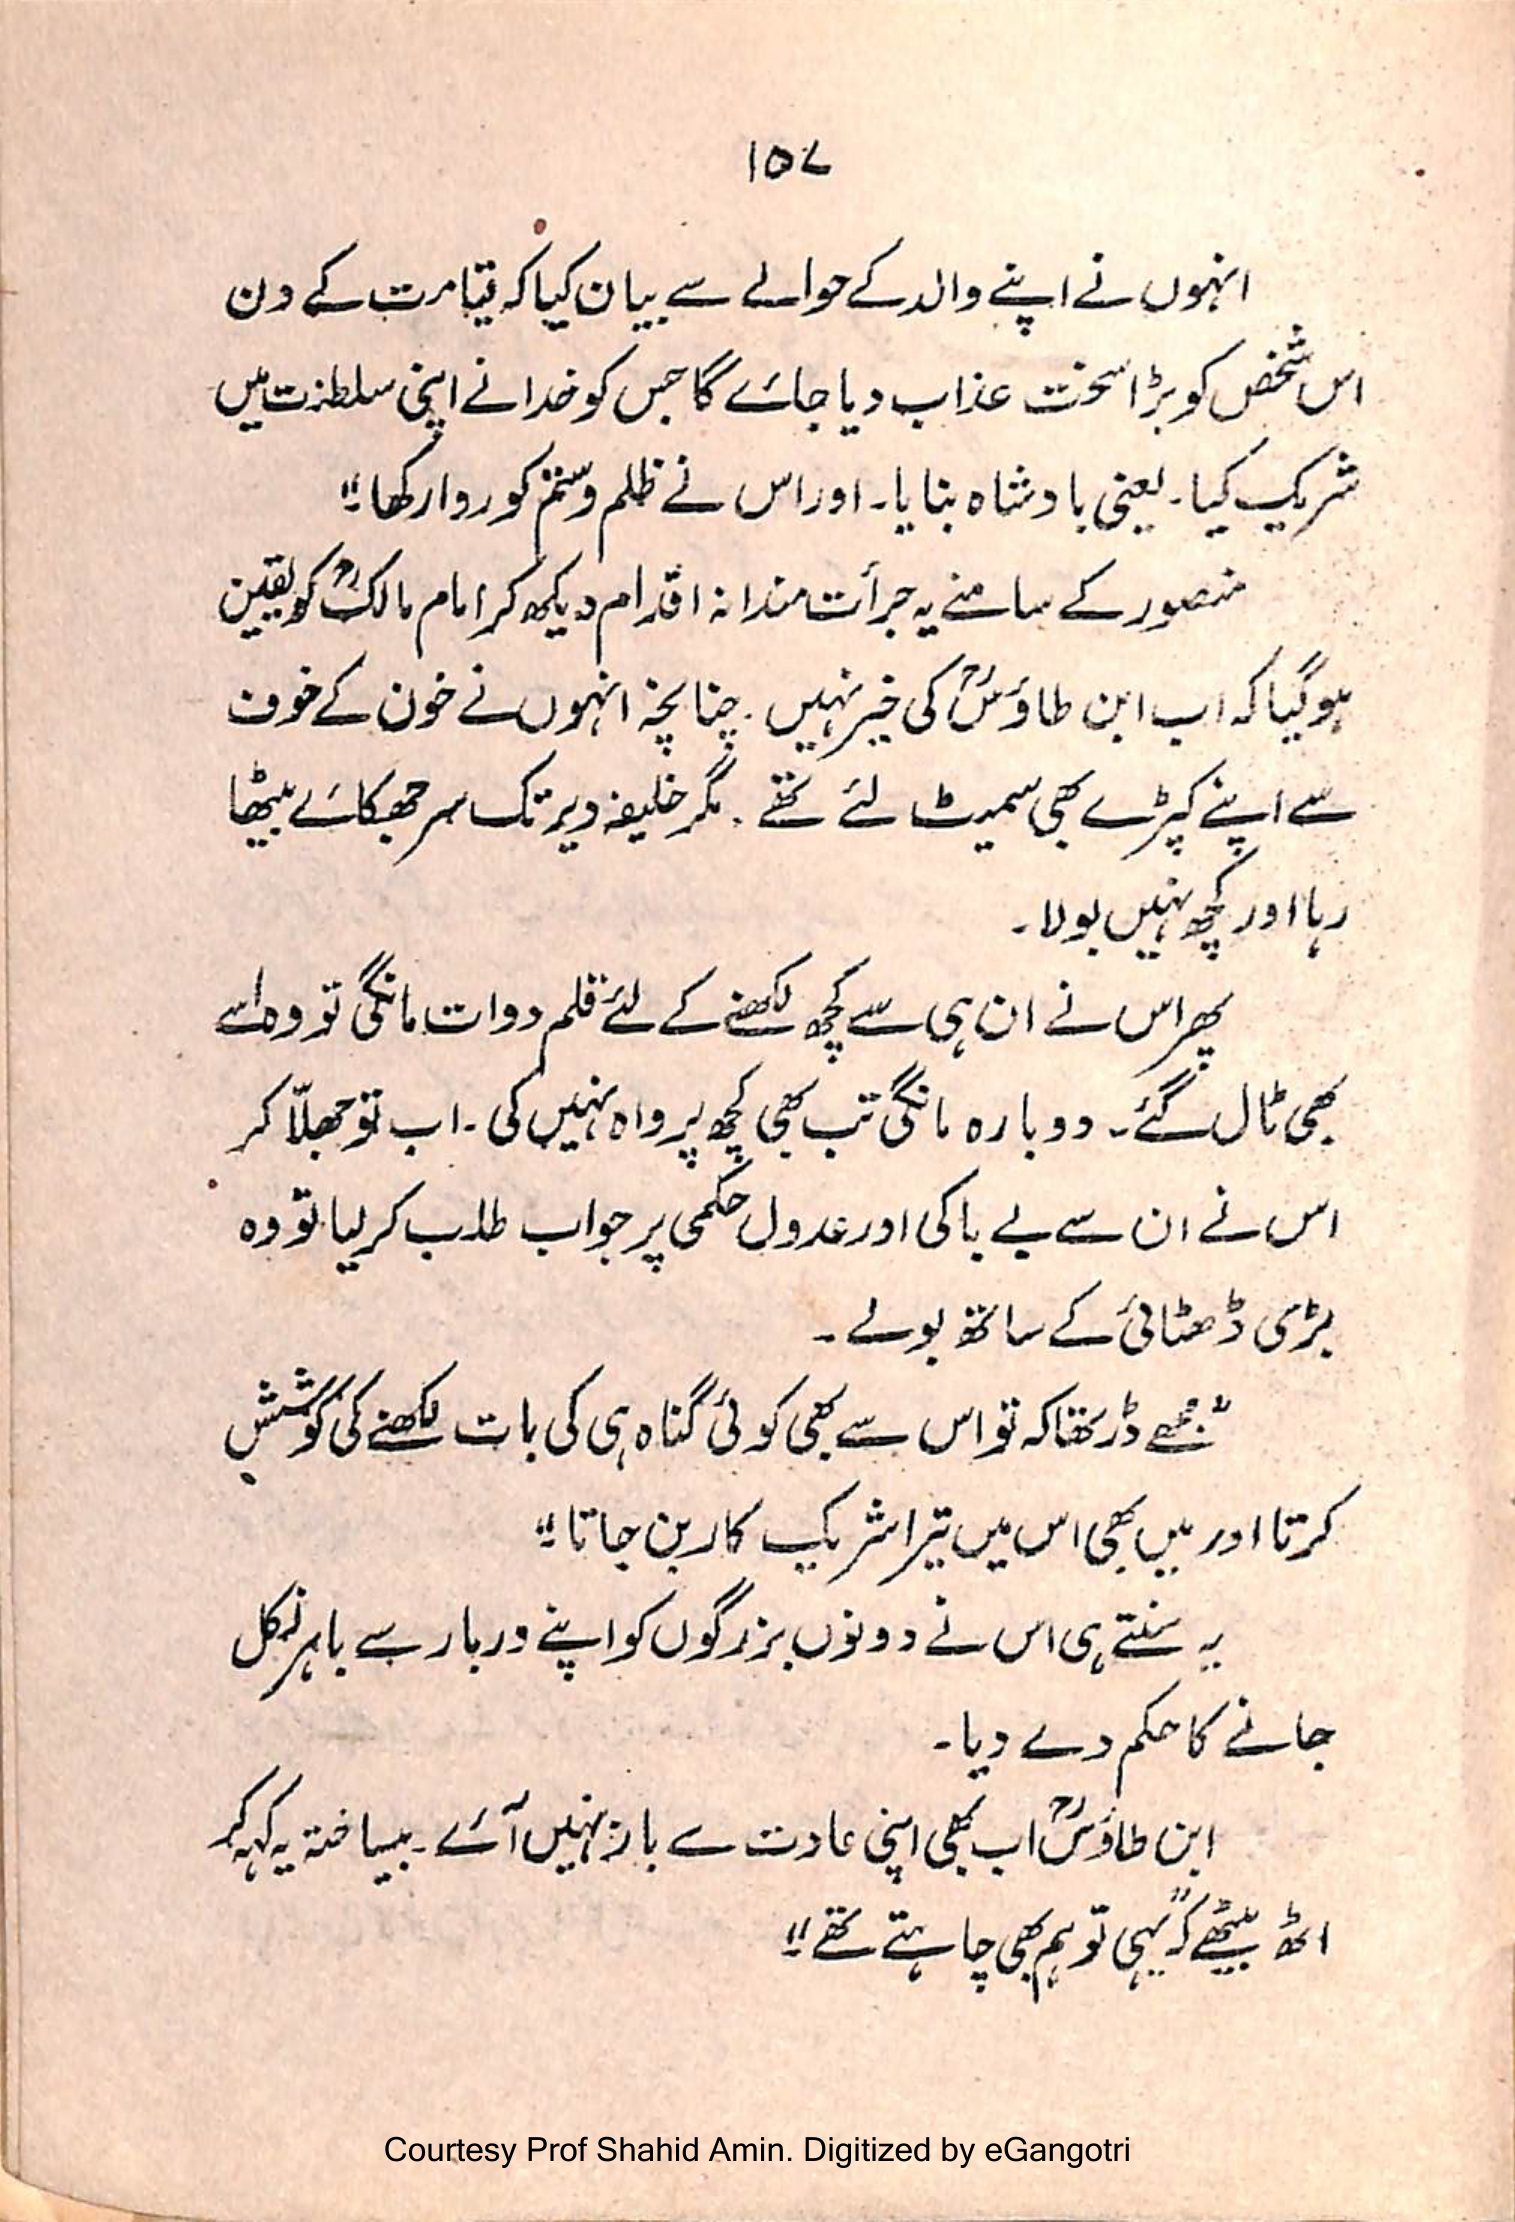 ۱۵۷
انہوں نے اپنے والد کے حوالے سے بیان کیا کہ قیامت کے دن
اس شخص کو بڑا سخت عذاب دیا جائے گا جس کو خدا نے اپنی سلطنت میں
شریک کیا۔ یعنی بادشاہ بنایا۔ اور اس نے ظلم و ستم کو روا رکھا۔"
منصور کے سامنے یہ جرأت مندانہ اقدام دیکھ کر امام مالکؒ کو یقین
ہو گیا کہ اب ابن طاؤسؒ کی خیر نہیں۔ چنانچہ انہوں نے خون کے خوف
سے اپنے کپڑے بھی سمیٹ لئے تھے۔ مگر خلیفہ دیر تک سر جھکائے بیٹھا
رہا اور کچھ نہیں بولا۔
پھر اس نے ان ہی سے کچھ لکھنے کے لئے قلم دوات مانگی تو وہ اسے
بھی ٹال گئے۔ دوبارہ مانگی تب بھی کچھ پرواہ نہیں کی۔ اب تو جھلّا کر
اس نے ان سے بے باکی اور عدول حکمی پر جواب طلب کر لیا تو وہ
بڑی ڈھٹائی کے ساتھ بولے۔
"مجھے ڈر تھا کہ تو اس سے بھی کوئی گناہ ہی کی بات لکھنے کی کوشش
کرتا اور میں بھی اس میں تیرا شریک کار بن جاتا۔"
یہ سنتے ہی اس نے دونوں بزرگوں کو اپنے دربار سے باہر نکل
جانے کا حکم دے دیا۔
ابن طاؤسؒ اب بھی اپنی عادت سے باز نہیں آئے۔ بیساختہ یہ کہہ کر
اٹھ بیٹھے کہ "یہی تو ہم بھی چاہتے تھے۔"
Courtesy Prof Shahid Amin. Digitized by eGangotri